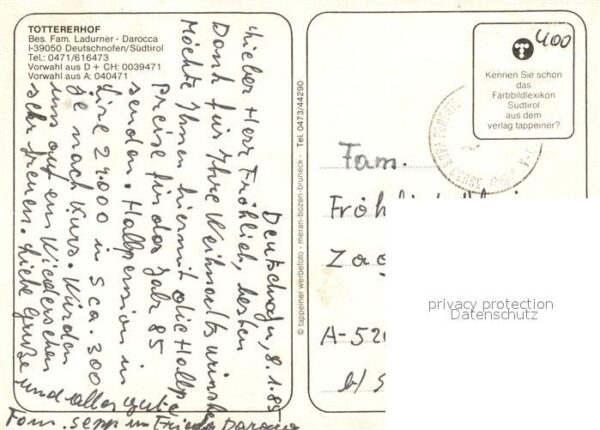 TOTTERERHOF
Bes. Fam. Ladurner - Darocca
I-39050 Deutschnofen/Südtirol
Tel.: 0471/616473
Vorwahl aus D + CH: 0039471
Vorwahl aus A: 040471
Deutschnofen, 8.1.85
Lieber Herr Fröhlich, besten
Dank für Ihre Weihnachtswünsche
Möchte Ihnen hiermit die Hallp
Preise für das Jahr 85
senden. Hallpension in
Lire 24.000 in S ca. 300
je nach Kurs. Würden
uns auf ein Wiedersehen
sehr freuen. Liebe Grüße
und alles gute
Fam. Sepp un Frieda Darocca
© tappeiner werbefoto - meran-bozen-bruneck - Tel. 0473/44290
400
Kennen Sie schon
das
Farbbildlexikon
Südtirol
aus dem
verlag tappeiner?
Fam.
Fröhlich
A-52
b/S
privacy protection
Datenschutz